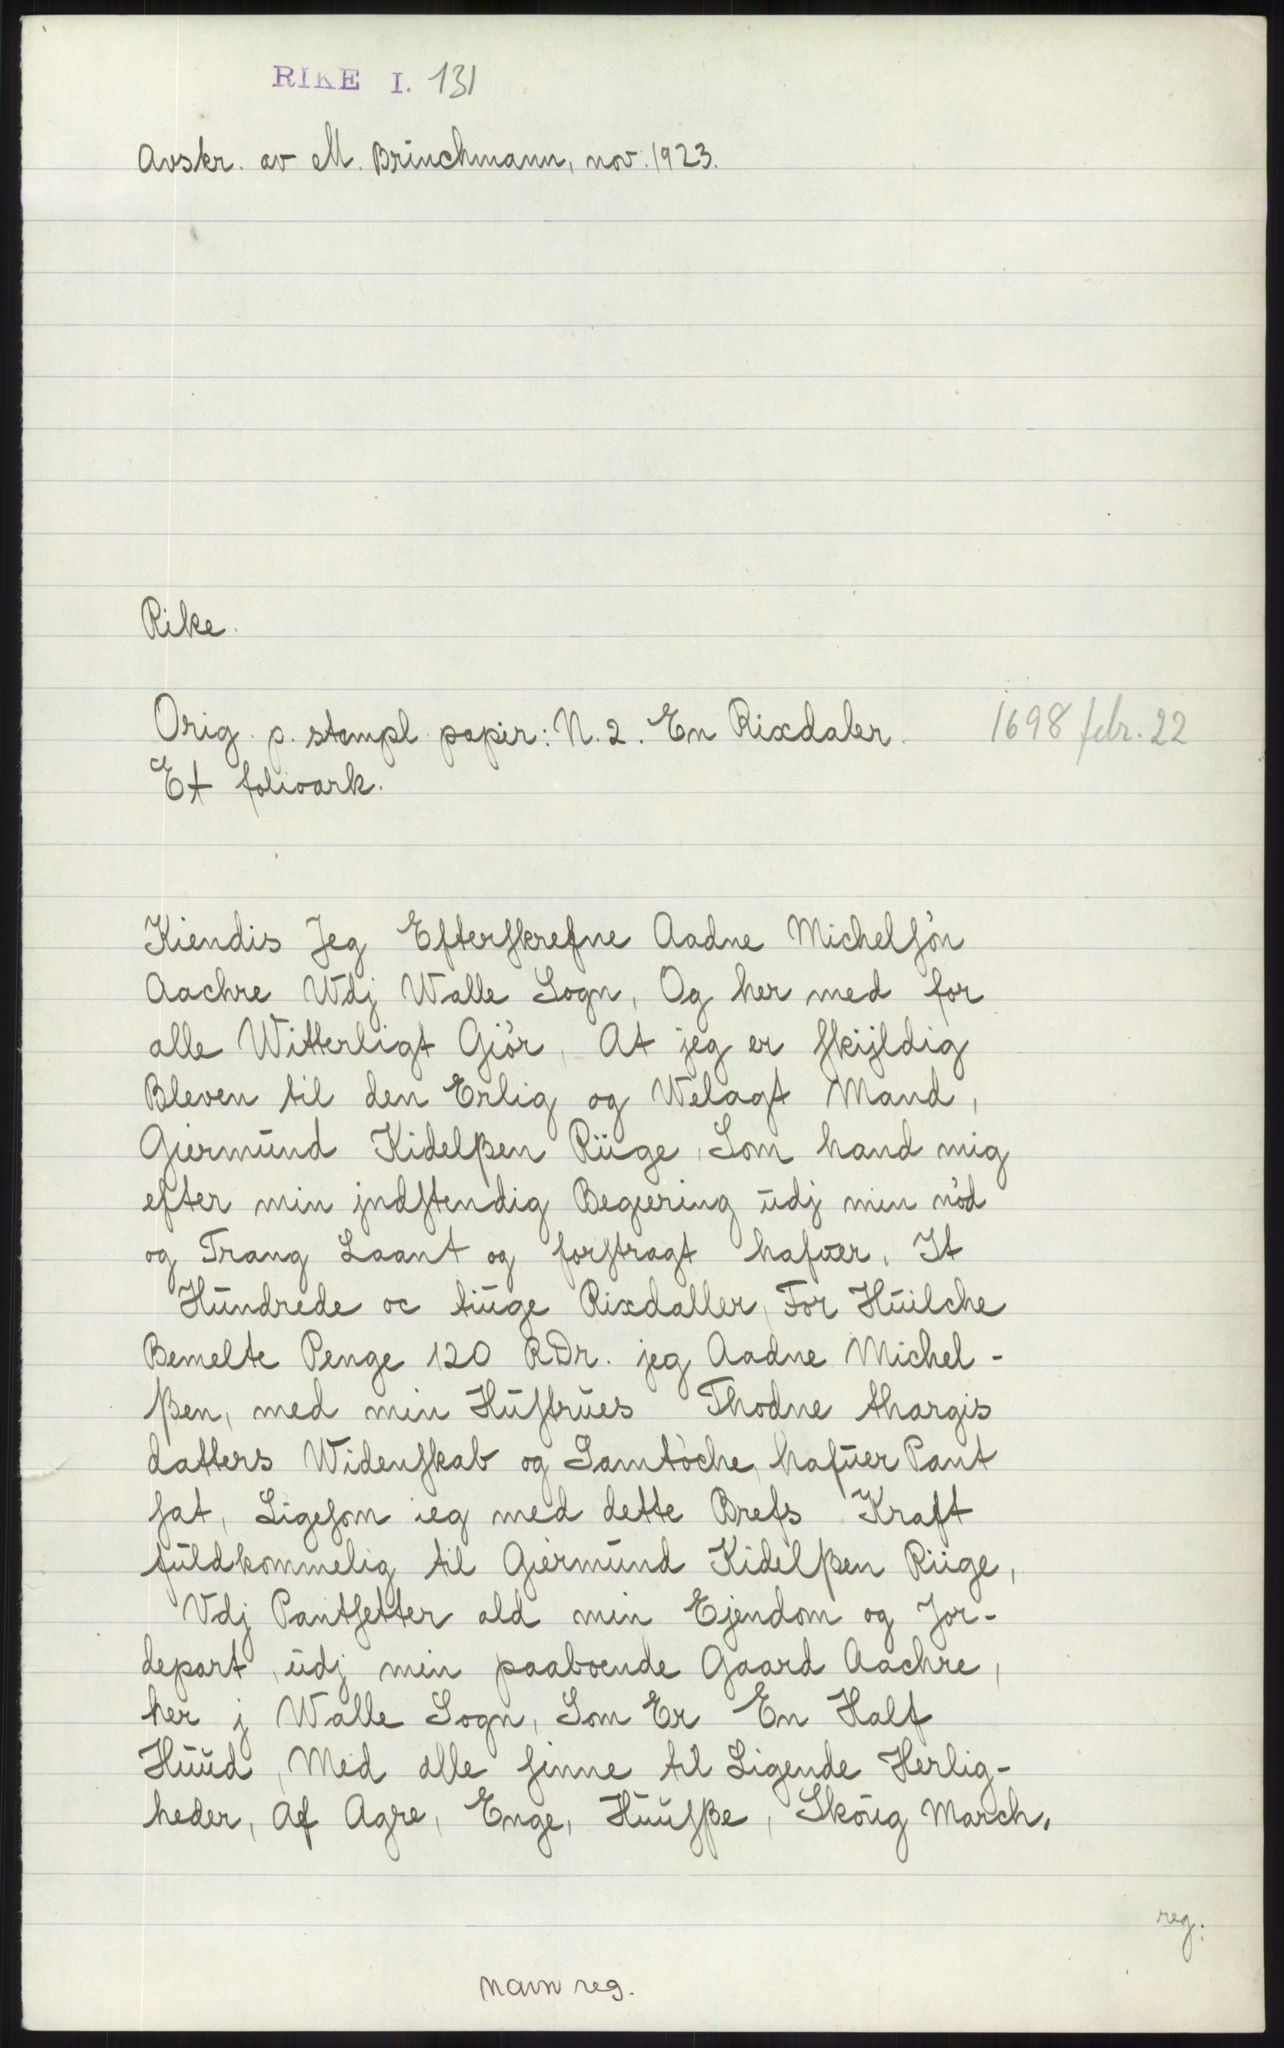 RIKE I. 131
Avskr. av M. Brinchmann, nov. 1923.
Rike.
Orig. p. stempl. papir: N. 2. En Rixdaler. 1698 febr. 22
Et folioark.
Kiendis Jeg Efterskrefne Aadne Michelsøn
Aachre Wdj Walle Sogn, Og her med for
alle Witterligt Giør, At jeg er skijldig
Bleven til den Erlig og Welagt Mand,
Giermund Kidelßen Riige, Som hand mig
efter min jndstendig Begiering udj min nød
og Trang Laant og forstragt hafver, It
Hundrede oc tiuge Rixdaller, For Huilche
Bemelte Penge 120 RDr. jeg Aadne Michel-
ßen, med min Hustrues Thodne thargis
datters Widenskab og Samtøche, hafuer Pant
sat, Ligesom ieg med dette Brefs Kraft
fuldkommelig til Giermund Kidelßen Riige,
Vdj Pantsetter ald min Ejendom og Jor-
depart, udj min paaboende Gaard Aachre,
her j Walle Sogn, Som Er En Half
Huud, Med alle sinne til Ligende Herlig-
heder, Af Agre, Enge, Huusße, Skoug March,
reg.
navn reg.